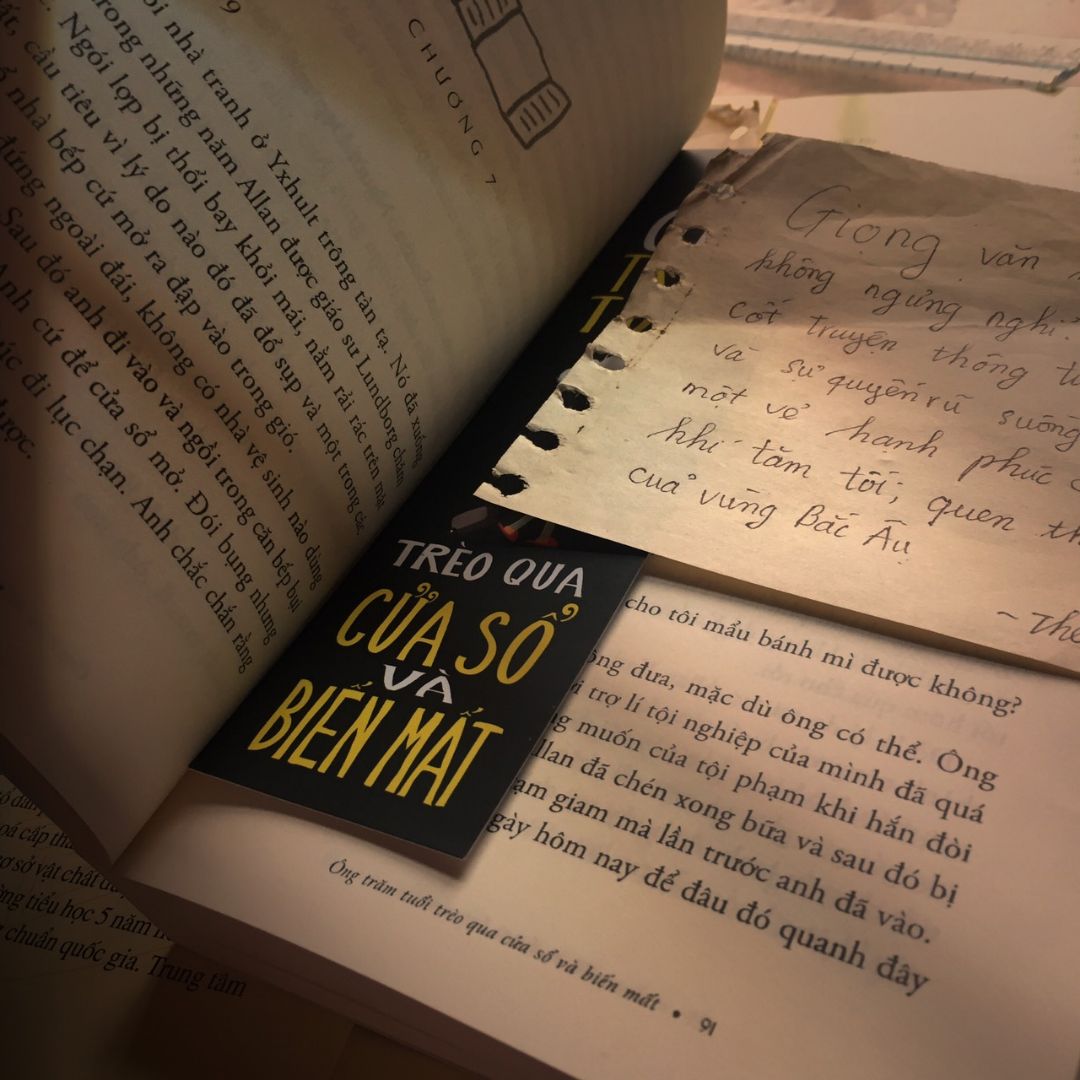 9
CHƯƠNG 7
ôi nhà tranh ở Yxhult trông tàn tạ. Nó đã xuống
trong những năm Allan được giáo sư Lundborg chăm
Ngói lợp bị thổi bay khỏi mái, nằm rải rác trên mặt
ất, cầu tiêu vì lý do nào đó đã đổ sụp và một trong các
ổ nhà bếp cứ mở ra đập vào trong gió.
đứng ngoài đái, không có nhà vệ sinh nào dùng
Sau đó anh đi vào và ngồi trong căn bếp bụi
Anh cứ để cửa sổ mở. Đói bụng nhưng
úc đi lục chạn. Anh chắc chắn rằng
được.
TRÈO QUA
CỬA SỔ
VÀ
BIẾN MẤT
Giọng văn
không ngưng nghỉ
cốt truyện thống
và sự quyến rũ sướng
một vẻ hạnh phúc
khí tăm tối; quen
của vùng Bắc Âu
~ The
cho tôi mẩu bánh mì được không?
ông đưa, mặc dù ông có thể. Ông
trợ lí tội nghiệp của mình đã quá
muốn của tội phạm khi hắn đòi
llan đã chén xong bữa và sau đó bị
ạm giam mà lần trước anh đã vào.
gày hôm nay để đâu đó quanh đây
Ông trăm tuổi trèo qua cửa sổ và biến mất • 91
oá cấp
ơ sở vật chất
ờng tiểu học 5 năm
chuẩn quốc gia. Trung tâm